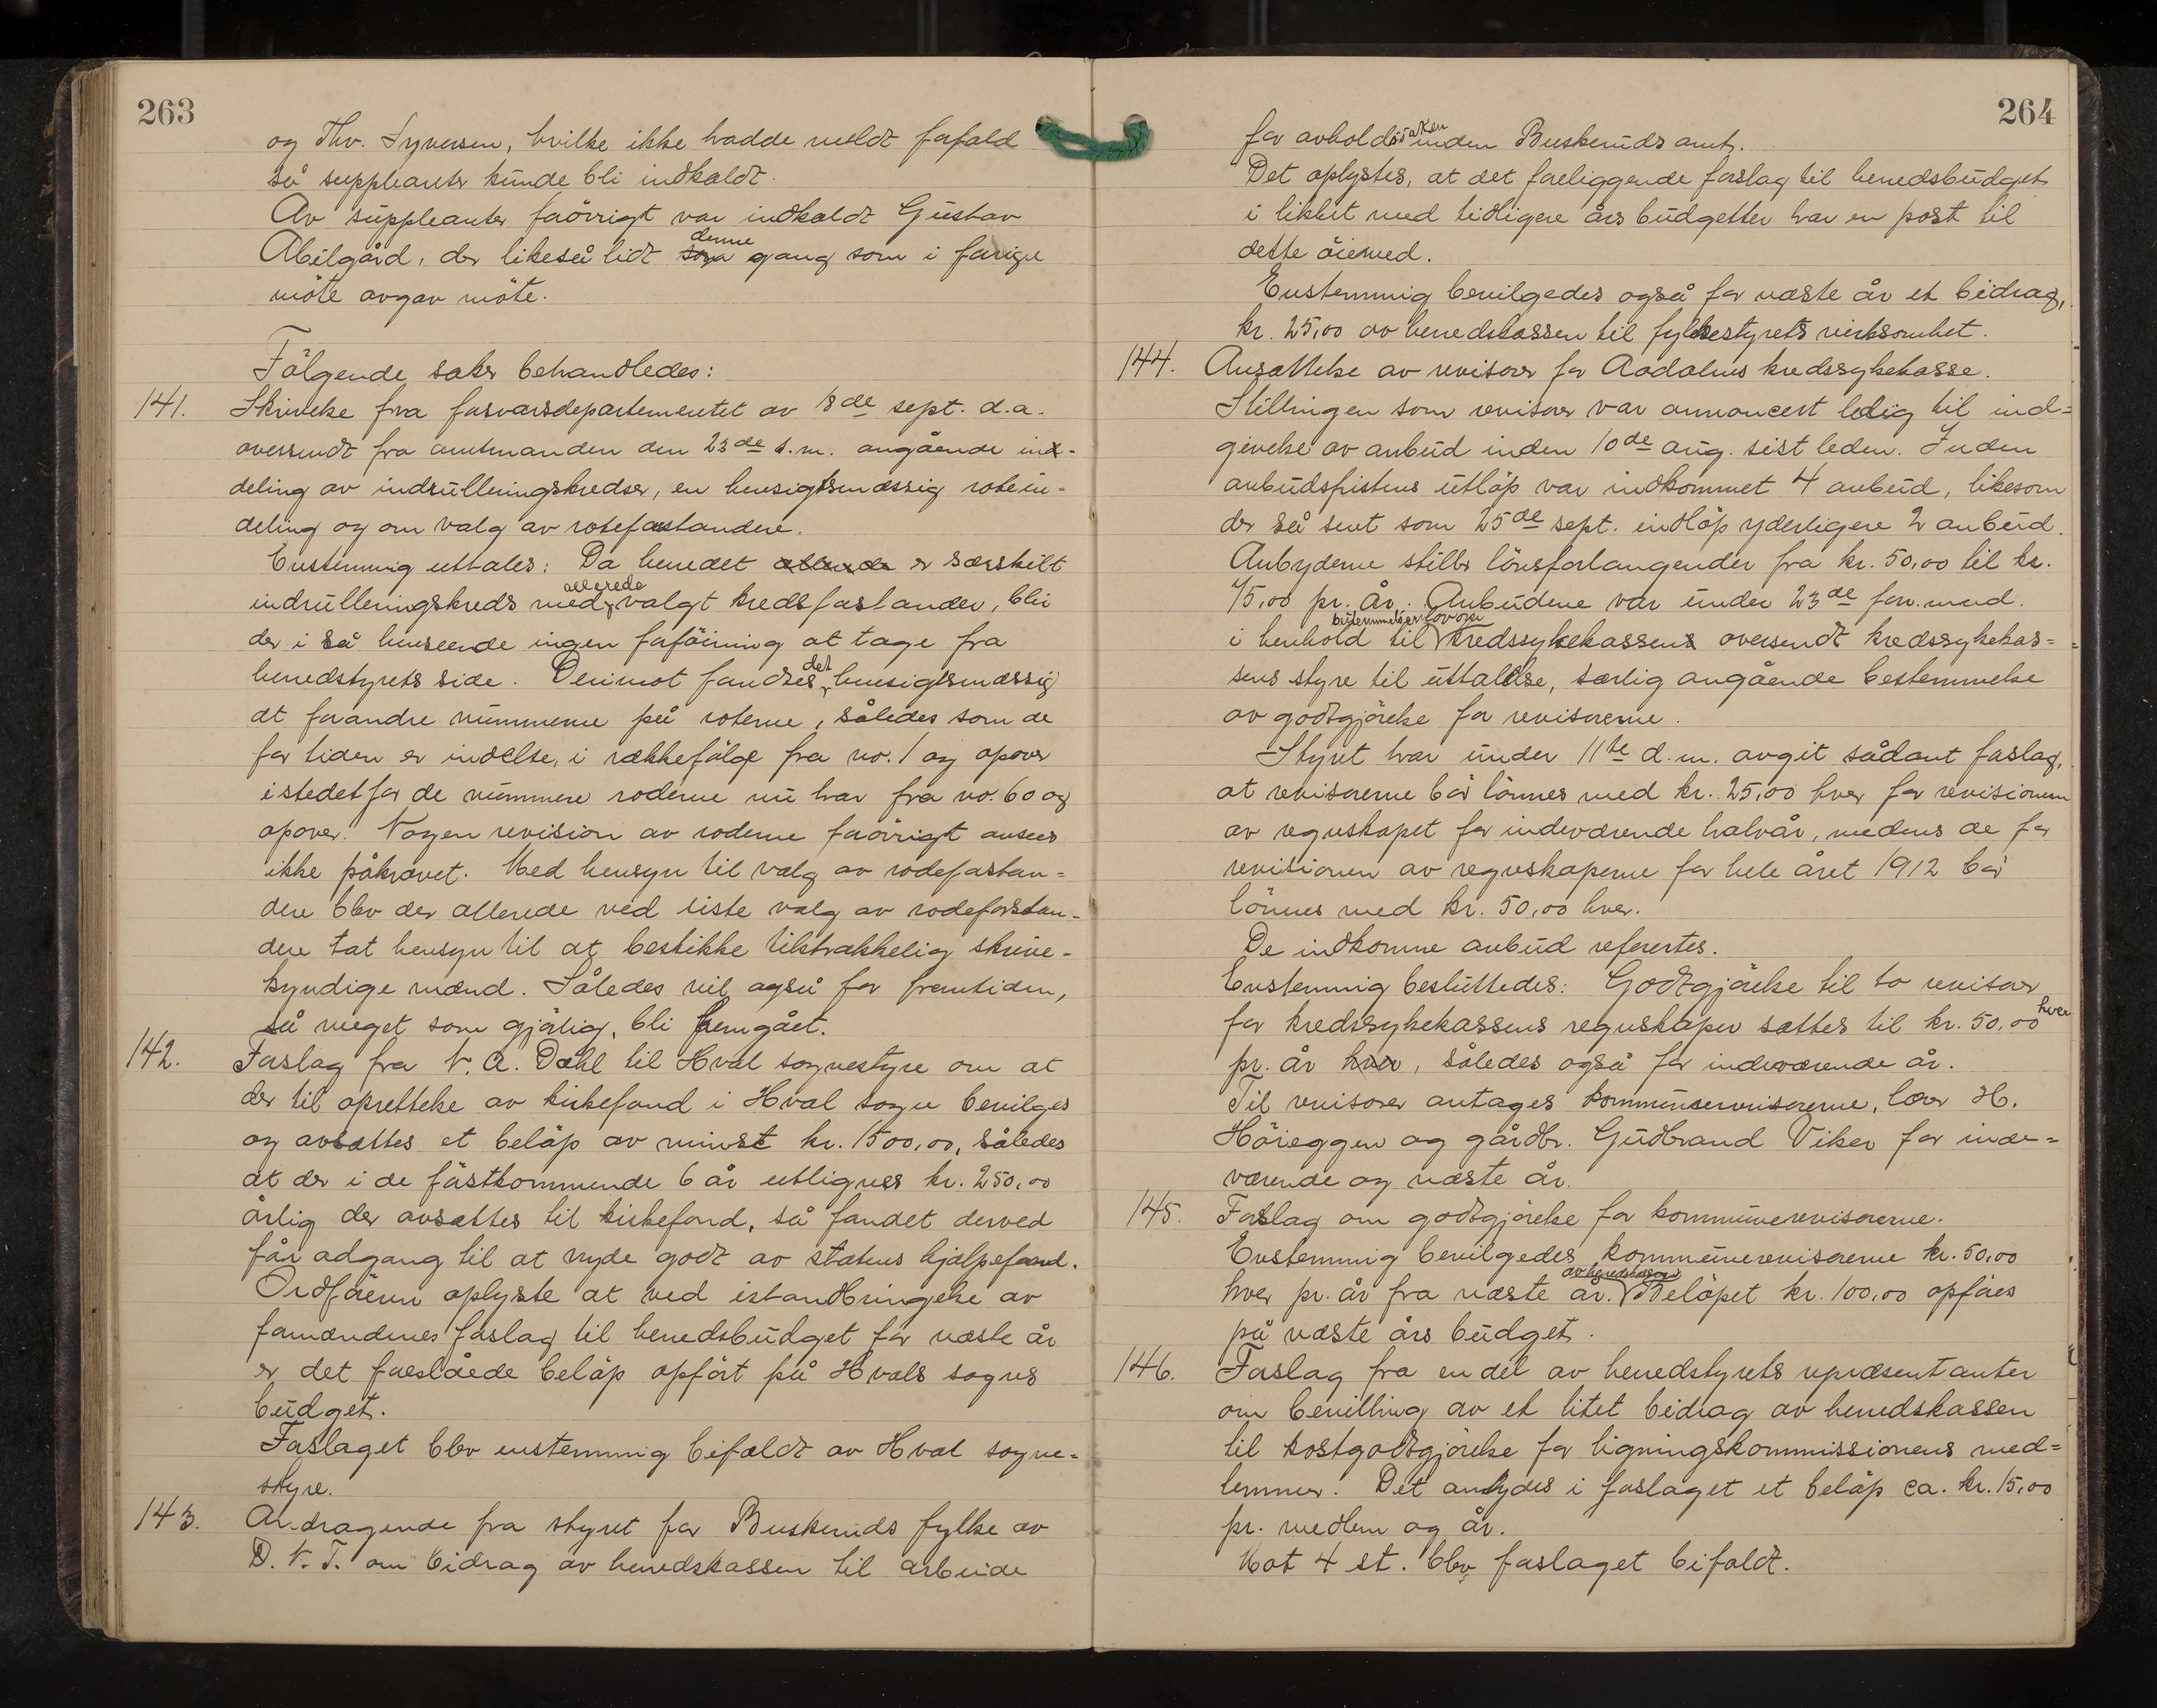 263
og Thv. Syversen, hvilke ikke hadde meldt forfald
så suppleanter kunde bli indkaldt.
Av suppleanter forövrigt var indkaldt Gustav
Abilgård, der likeså lidt denne gang som i forrige
möte avgav möte.
Fölgende saker behandledes:
141. Skrivelse fra forsvarsdepartementet av 18de sept. d.a.
oversendt fra amtmanden den 23de s.m. angående ind-
deling av indrulleringskredser, en hensigtsmæssig rotein-
deling og om valg av roteforstandere.
Enstemmig uttales: Da herredet er særskilt
indrulleringskreds med allerede valgt kredsforstander, blir
der i så henseende ingen forföining at tage fra
herredstyrets side. Derimot fandtes det hensigtsmæssig
at forandre nummerne på roterne, således som de
for tiden er inddelte, i rækkefölge fra no. 1 og opover
istedetfor de nummere roderne nu har fra no. 60 og
opover. Nogen revision av roderne forövrigt ansees
ikke påkrævet. Med hensyn til valg av rodeforstan-
dere blev der allerede ved siste valg av rodeforstan-
dere tat hensyn til at beskikke tilstrækkelig skrive-
kyndige mænd. Således vil også for fremtiden,
så meget som gjörlig, bli fremgået.
142. Forslag fra N. A. Dæhl til Hval sognestyre om at
der til oprettelse av kirkefond i Hval sogn bevilges
og avsættes et belöp av minst kr. 1500,00, således
at der i de förstkommende 6 år utlignes kr. 250,00
årlig der avsættes til kirkefond, så fondet derved
får adgang til at nyde godt av statens hjælpefond.
Ordföreren oplyste at ved istandbringelse av
formændenes forslag til herredsbudget for næste år
er det foreslåede belöp opfört på Hvals sogns
budget.
Forslaget blev enstemmig bifaldt av Hval sogne-
styre.
143. Andragende fra styret for Buskeruds fylke av
D. N. T. om bidrag av herredskassen til arbeide
264
for avholdssaken inden Buskeruds amt.
Det oplystes, at det foreliggende forslag til herredsbudget
i likhet med tidligere års budgetter har en post til
dette öiemed.
Enstemmig bevilgedes også for næste år et bidrag,
kr. 25,00 av herredskassen til fylkestyrets virksomhet.
144. Ansættelse av revisorer for Aadalens kredssykekasse.
Stillingen som revisorer var annoncert ledig til ind=
givelse av anbud inden 10de aug. sist leden. Inden
anbudsfristens utlöp var indkommet 4 anbud, likesom
der så sent som 25de sept. indlöp yderligere 2 anbud.
Anbyderne stiller lönsforlangender fra kr. 50,00 til kr.
75,00 pr. år. Anbudene var under 23de forr. mnd.
i henhold til bestemmelser i lov om kredssykekassens oversendt kredssykekas=
sens styre til uttalelse, særlig angående bestemmelse
av godtgjörelse for revisorerne.
Styret har under 11te d.m. avgit sådant forslag,
at revisorerne bör lönnes med kr. 25,00 hver for revisionen
av regnskapet for indeværende halvår, medens de for
revisionen av regnskaperne for hele året 1912 bör
lönnes med kr. 50,00 hver.
De indkomne anbud refereertes.
Enstemmig besluttedes: Godtgjörelse til to revisorer
for kredssykekassens regnskaper sættes til kr. 50,00 hver
pr. år hver, således også for indeværende år.
Til revisorer antages kommunerevisorerne, lærer H.
Höieggen og gårdbr. Gudbrand Viker for inde=
værende og næste år.
145. Forslag om godtgjörelse for kommunerevisorerne.
Enstemmig bevilgedes kommunerevisorerne kr. 50,00
hver pr. år fra næste år. av herredskassen Belöpet kr. 100,00 opföres
på næste års budget.
146. Forslag fra en del av herredstyrets repræsentanter
om bevilling av et litet bidrag av herredskassen
til kostgodtgjörelse for ligningskommissionens med=
lemmer. Det antydes i forslaget et belöp ca. kr. 15,00
pr. medlem og år.
Mot 4 st. blev forslaget bifaldt.